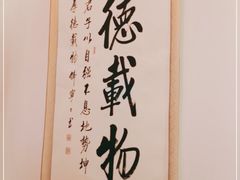 德載物
君子以自強不息地勢坤
厚德載物